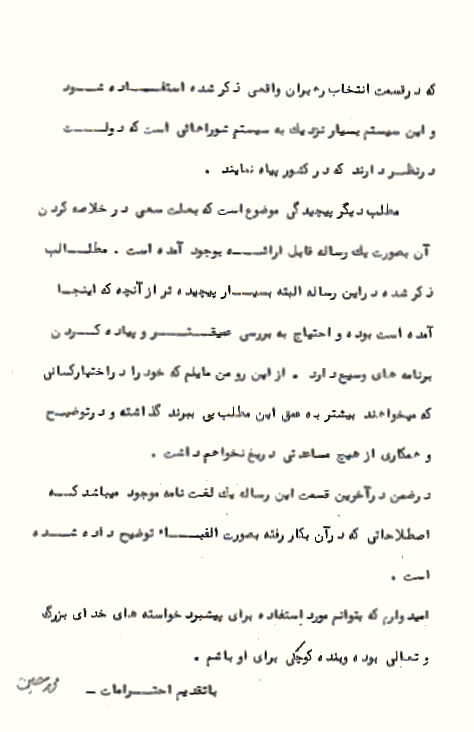 که در قسمت انتخاب رهبران واقعی ذکر شده استفاده شود
و این سیستم بسیار نزدیك به سیستم شوراهائی است که دولت
در نظر دارند که در کشور پیاه نمایند .
مطلب دیگر پیچیدگی موضوع است که بعلت سعی در خلاصه کردن
آن بصورت یك رساله قابل ارائه بوجود آمده است . مطالب
ذکر شده در این رساله البته بسیار پیچیده تر از آنچه که اینجا
آمده است بوده و احتیاج به بررسی عمیقتر و پیاده کردن
برنامه های وسیع دارد . از این رو من مایلم که خود را در اختیار کسانی
که میخواهند بیشتر به عمق این مطلب پی ببرند گذاشته و در توضیح
و همکاری از هیچ مساعدتی دریغ نخواهم داشت .
در ضمن در آخرین قسمت این رساله یك لغت نامه موجود میباشد که
اصطلاحاتی که در آن بکار رفته بصورت الفباء توضیح داده شده
است .
امیدوارم که بتوانم مورد استفاده برای پیشبرد خواسته های خدای بزرگ
و تعالی بوده و بنده کوچکی برای او باشم .
با تقدیم احترامات ــ